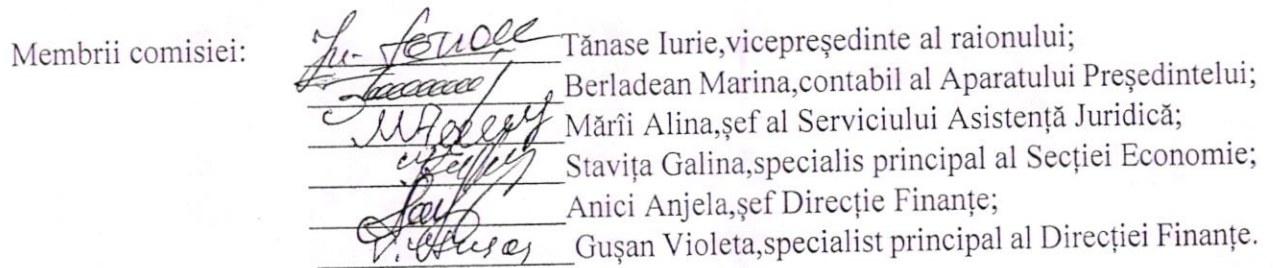 Membrii comisiei: Tănase Iurie,vicepreședinte al raionului;
Berladean Marina,contabil al Aparatului Președintelui;
Mărîi Alina,șef al Serviciului Asistență Juridică;
Stavița Galina,specialis principal al Secției Economie;
Anici Anjela,șef Direcție Finanțe;
Gușan Violeta,specialist principal al Direcției Finanțe.